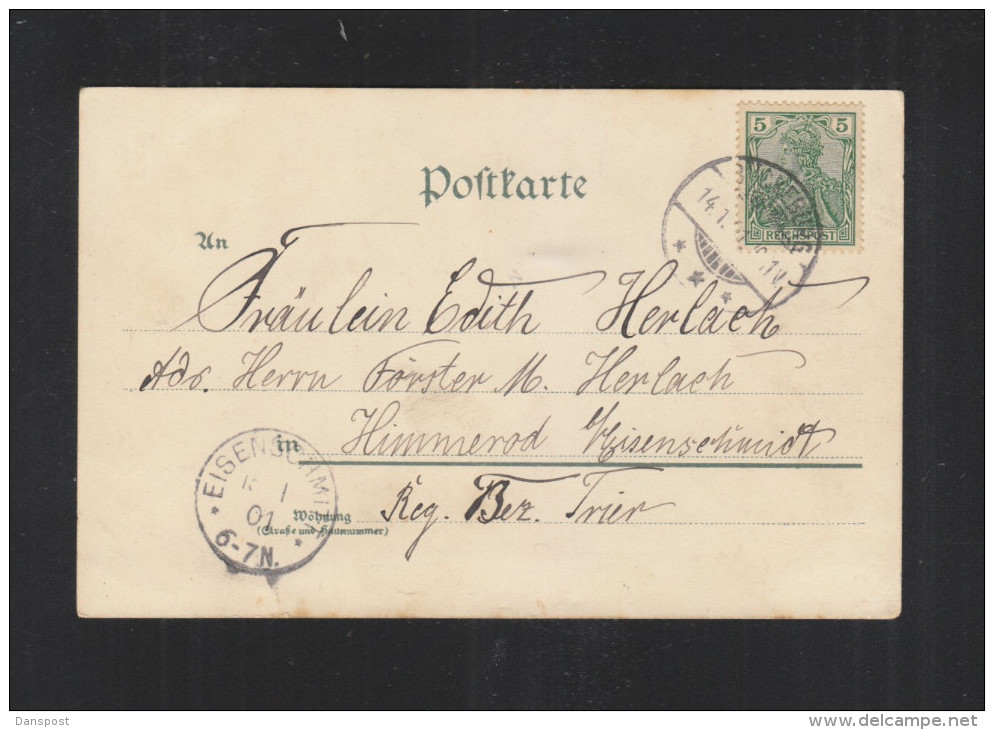 5 5
REICHSPOST
Postkarte
14.1.
An
Fräulein Edith Herlach
Adr. Herrn Förster M. Herlach
in Himmerod b/Eisenschmidt
EISENSCHMI
1
01
6-7N.
Wohnung
(Straße und Hausnummer)
Reg. Bez. Trier
Danspost
www.delcampe.net